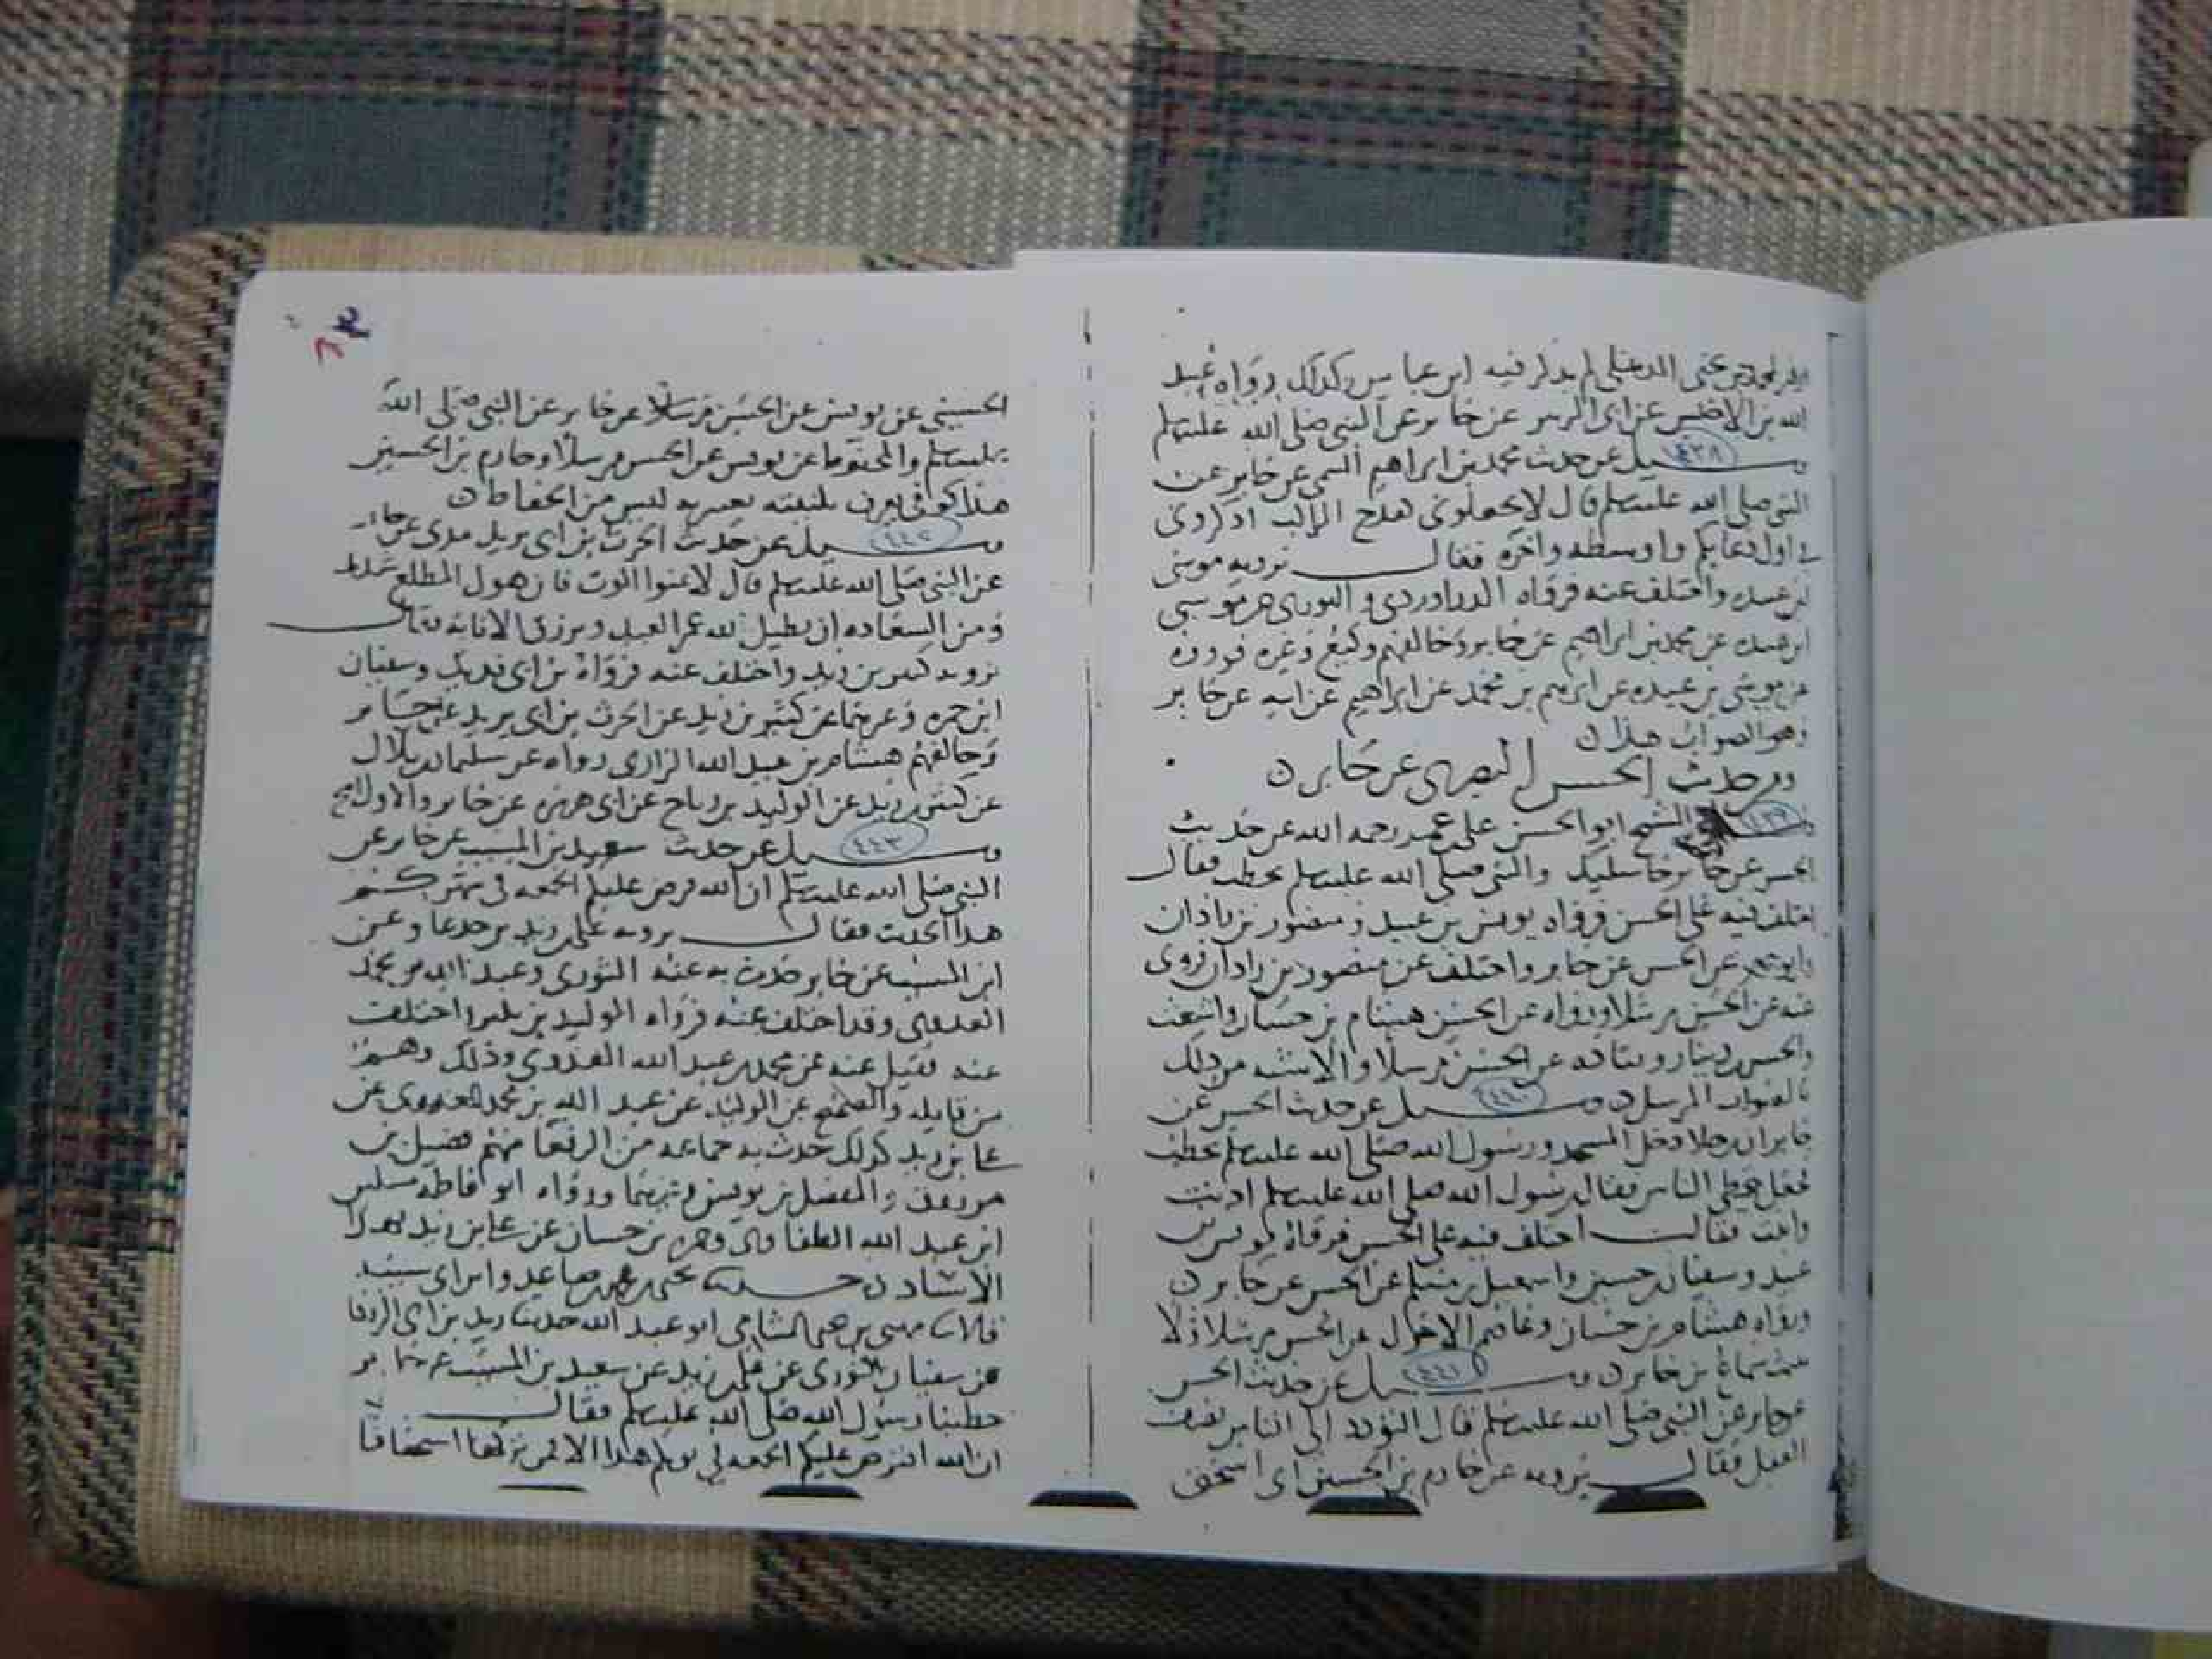 لم يذكر فيه ابن عباس وكذلك رواه عبيد
الله بن الاخنس عن ابي الزبير عن جابر عن النبي صلى الله عليه وسلم
٤٣٨ وسئل عن حديث محمد بن ابراهيم التيمي عن جابر عن
النبي صلى الله عليه وسلم قال لا تجعلوني كقدح الراكب اذكروني
في اول دعايكم واوسطه واخره فقال يرويه موسى
بن عبيده واختلف عنه فرواه الدراوردي والثوري عن موسى
ابن عبيده عن محمد بن ابراهيم عن جابر وخالفهم وكيع وغيره فرووه
عن موسى بن عبيده عن ابراهيم بن محمد عن ابراهيم عن ابيه عن جابر
وهو الصواب
ومن حديث الحسن البصري عن جابر
٤٣٩ وسئل الشيخ ابو الحسن علي بن عمر رحمه الله عن حديث
الحسن عن جابر جا سليك والنبي صلى الله عليه وسلم يخطب فقال
اختلف فيه على الحسن فرواه يونس بن عبيد ومنصور بن زاذان
عن الحسن عن جابر واختلف عن منصور بن زاذان فروى
عنه عن الحسن مرسلا ورواه عن الحسن هشام بن حسان واشعث
والحسن بن دينار وقتاده عن الحسن مرسلا والاشبه من ذلك
بالصواب المرسل ٤٤٠ وسئل عن حديث الحسن عن
جابر ان رجلا دخل المسجد ورسول الله صلى الله عليه وسلم يخطب
فجعل يتخطى الناس فقال رسول الله صلى الله عليه وسلم اذيت
وانيت فقال اختلف فيه على الحسن فرواه يونس بن
عبيد وسفيان بن حسين واسمعيل بن مسلم عن الحسن عن جابر
ورواه هشام بن حسان وعاصم الاحول عن الحسن مرسلا ولا
يثبت سماعه من جابر ٤٤١ وسئل عن حديث الحسن
عن جابر عن النبي صلى الله عليه وسلم قال التودد الى الناس نصف
العقل فقال يرويه حازم بن الحسين ابو اسحق
الحسيني عن يونس عن الحسن مرسلا عن جابر عن النبي صلى الله
عليه وسلم والمحفوظ عن يونس عن الحسن مرسلا وحازم بن الحسين
هذا كوفي يعرف بكنيته ليس من الحفاظ
٤٤٢ وسئل عن حديث الحرث بن ابي يزيد مدني عن جابر
عن النبي صلى الله عليه وسلم قال لا تمنوا الموت فان هول المطلع شديد
ومن السعاده ان يطيل الله عمر العبد ويرزق الانابه فقال
يرويه كثير بن زيد واختلف عنه فرواه بن ابي فديك وسفيان
ابن حمزه وغيرهما عن كثير بن زيد عن الحرث بن ابي يزيد عن جابر
وخالفهم هشام بن عبيد الله الرازي رواه عن سليمان بن بلال
عن كثير بن زيد عن الوليد بن رباح عن ابي هريره عن جابر والاول اصح
٤٤٣ وسئل عن حديث سعيد بن المسيب عن جابر عن
النبي صلى الله عليه وسلم ان الله فرض عليكم الجمعه في شهركم
هذا الحديث فقال يرويه علي بن زيد بن جدعان عن
ابن المسيب عن جابر حدث به عنه الثوري وعبد الله بن محمد
العدوي وقد اختلف عنه فرواه الوليد بن بكير واختلف
عنه فقيل عنه عن محمد بن عبد الله العدوي وذلك وهم
من قايله والصحيح عن الوليد عن عبد الله بن محمد العدوي عن
علي بن زيد كذلك حدث به جماعه من الرفعا منهم فضيل بن
مرزوق والمفضل بن يونس وغيرهما ورواه ابو فاطمه مسكين
ابن عبد الله الطفاوي وحمزه بن حسان عن علي بن زيد بهذا
الاسناد حدثنا يحيى بن محمد بن صاعد وابن ابي شيبه
قالا ثنا مهنى بن يحيى الشامي ابو عبد الله حدثنا زيد بن ابي الزرقا
عن سفيان الثوري عن علي بن زيد عن سعيد بن المسيب عن جابر
خطبنا رسول الله صلى الله عليه وسلم فقال
ان الله افترض عليكم الجمعه في يومكم هذا الا فمن تركها استخفافا